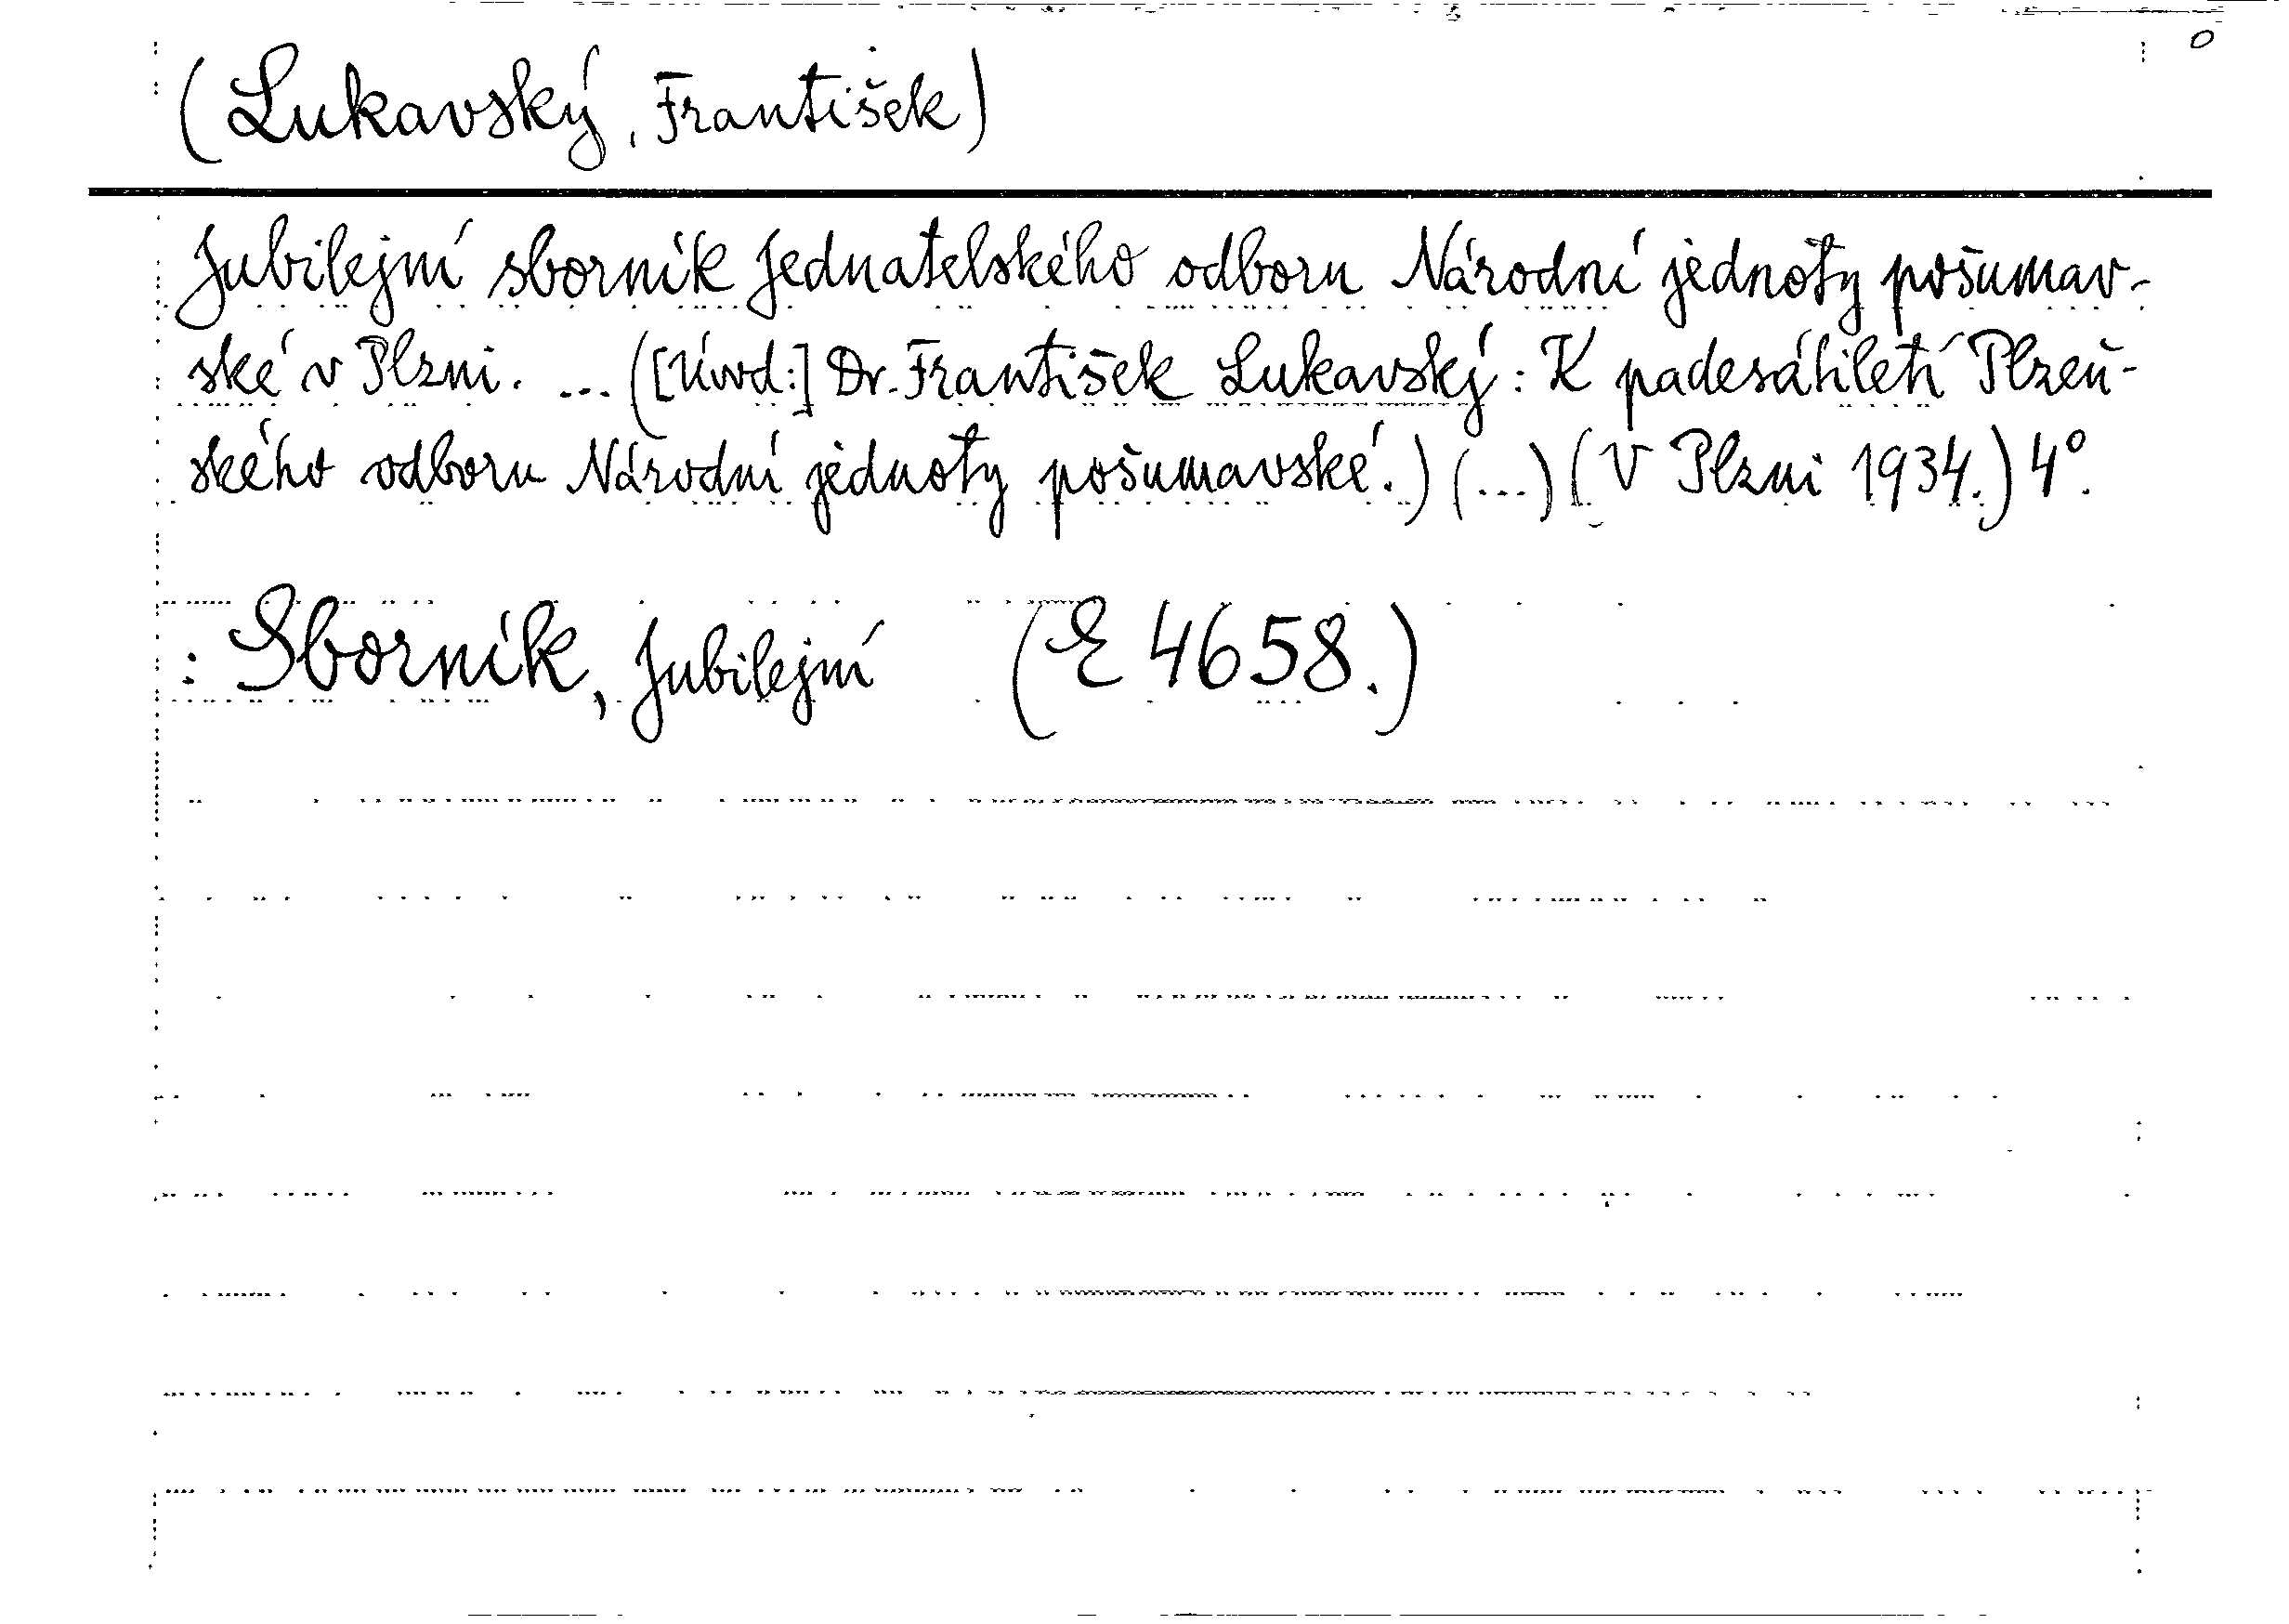 (Lukavský, František)
Jubilejní sborník Jednatelského odboru Národní jednoty pošumav-
ské v Plzni. ... ([Úvod:] Dr. František Lukavský: K padesátiletí Plzeň-
ského odboru Národní jednoty pošumavské.) (...) (V Plzni 1934.) 4°.
: Sborník, Jubilejní (E 4658.)